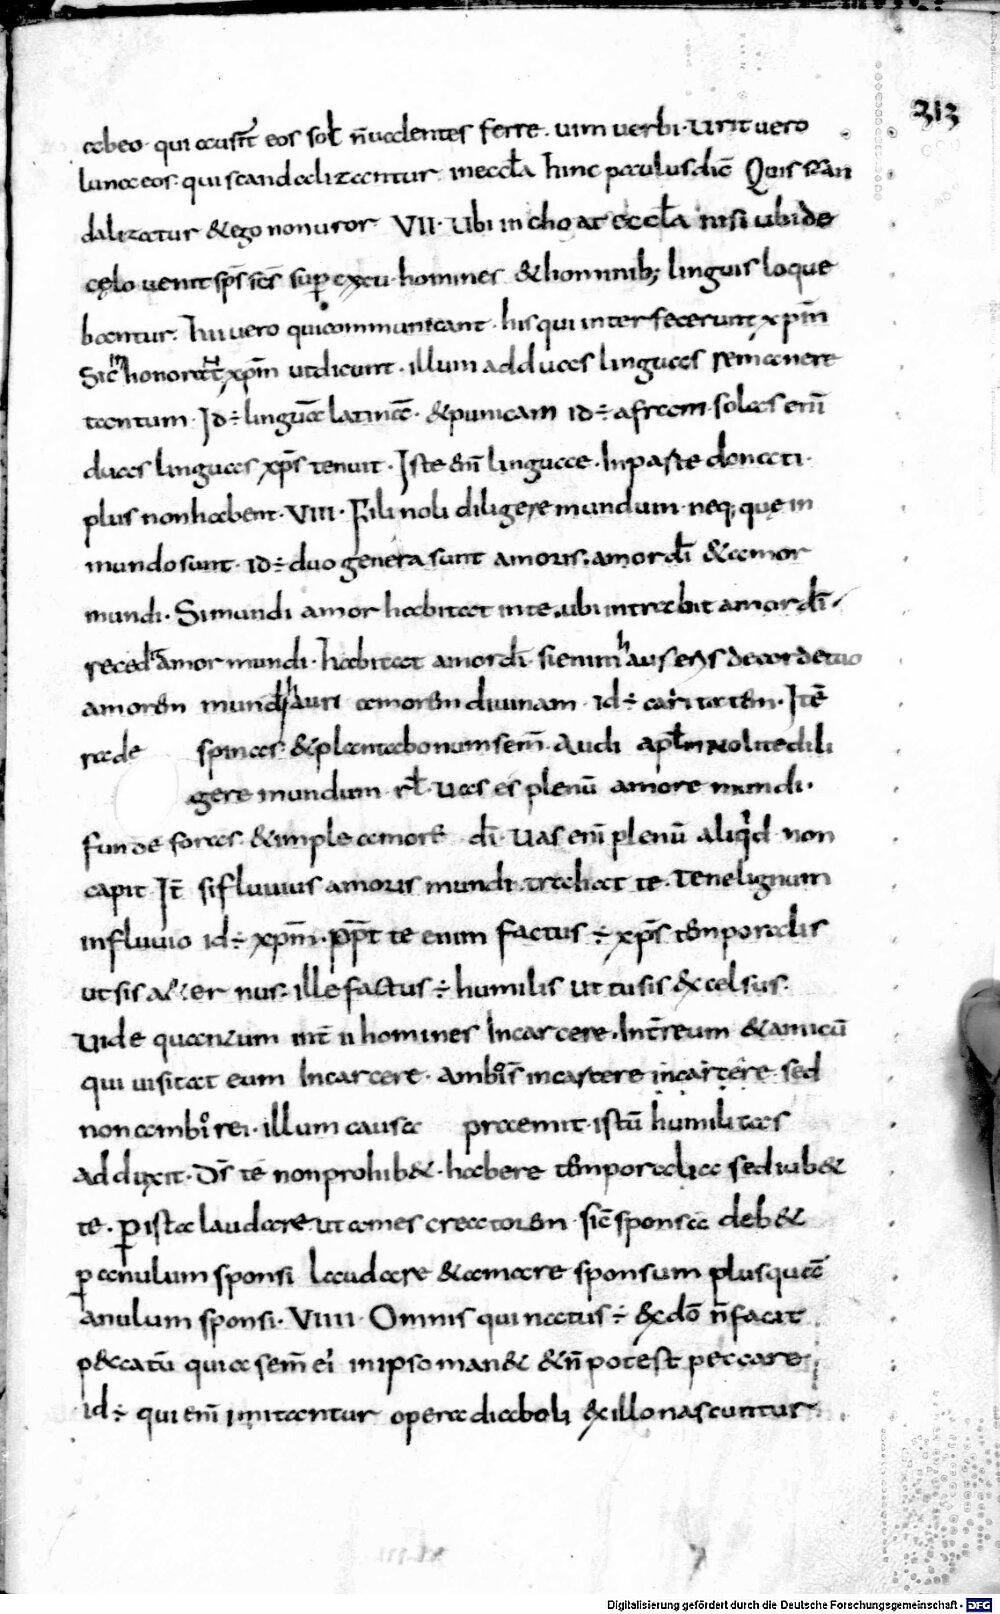 213
abeo · qui accusant̄ eos sol̄ n̄ uolentes ferre · uim uerbi · Urit uero
luna eos · qui scandalizantur in eccl̄a hinc paulus dic̄ Quis scan
dalizatur & ego non uror VII · Ubi inchoat eccl̄a nisi ubi de
cęlo uenit sp̄s sc̄s sup̱ cxxu homines & hominib; linguis loque
bantur · hii uero qui communicant · his qui interfecerunt xpm̄
Sic honorat xpm̄ ut dicunt · illum ad duas linguas remanere
tantum · Id ÷ linguā latinā · & punicam id ÷ afram · solas enī
duas linguas xp̄s tenuit · Iste enī linguae · In paste donati ·
plus non habent · VIII · Fili noli diligere mundum · neq; que in
mundo sunt · id ÷ duo genera sunt amoris · amor dī & amor
mundi · Si mundi amor habitat in te · ubi intrabit amor dī ·
recedat amor mundi · habitat amor dī · si enim hauseris de corde tuo
amorem mundi hauri amorem diuinam id ÷ caritatem · Itē
rade spinas · & planta bonum sem̄ · Audi apl̄m Nolite dili
gere mundum rl̄ · Uas es plenū amore mundi ·
funde foras · & imple amorē dī · Uas enī plenū aliquid non
capit It̄ si fluuius amoris mundi trahat te · Tene lignum
in fluuio id ÷ xpm̄ · ppt̄ te enim factus ÷ xp̄s temporalis
ut sis aeternus · ille factus ÷ humilis ut tu sis excelsus ·
Uide quantum int̄ ii homines In carcere · Int̄ reum & amicū
qui uisitat eum In carcere · ambo s̄ in carcere in carcere sed
non ambo rei · illum causa praemit · istū humilitas
adduxit · Ds̄ te non prohib& · habere temporalia sed iub&
te · p̱ ista laudare ut ames creatorem · sic̄ sponsa deb&
p̱ anulum sponsi laudare & amare sponsum plus quā
anulum sponsi · VIIII · Omnis qui natus ÷ ex dō n̄ facit
peccatū quia sem̄ ei in ipso man& & n̄ potest peccare
id ÷ qui enī imitantur opera diaboli ex illo nascuntur
Digitalisierung gefördert durch die Deutsche Forschungsgemeinschaft - DFG